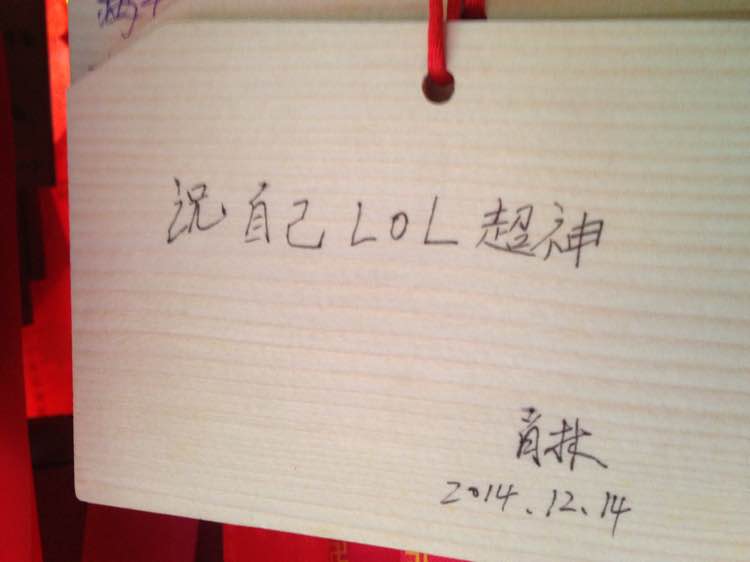 祝自己LOL超神
肖林
2014.12.14